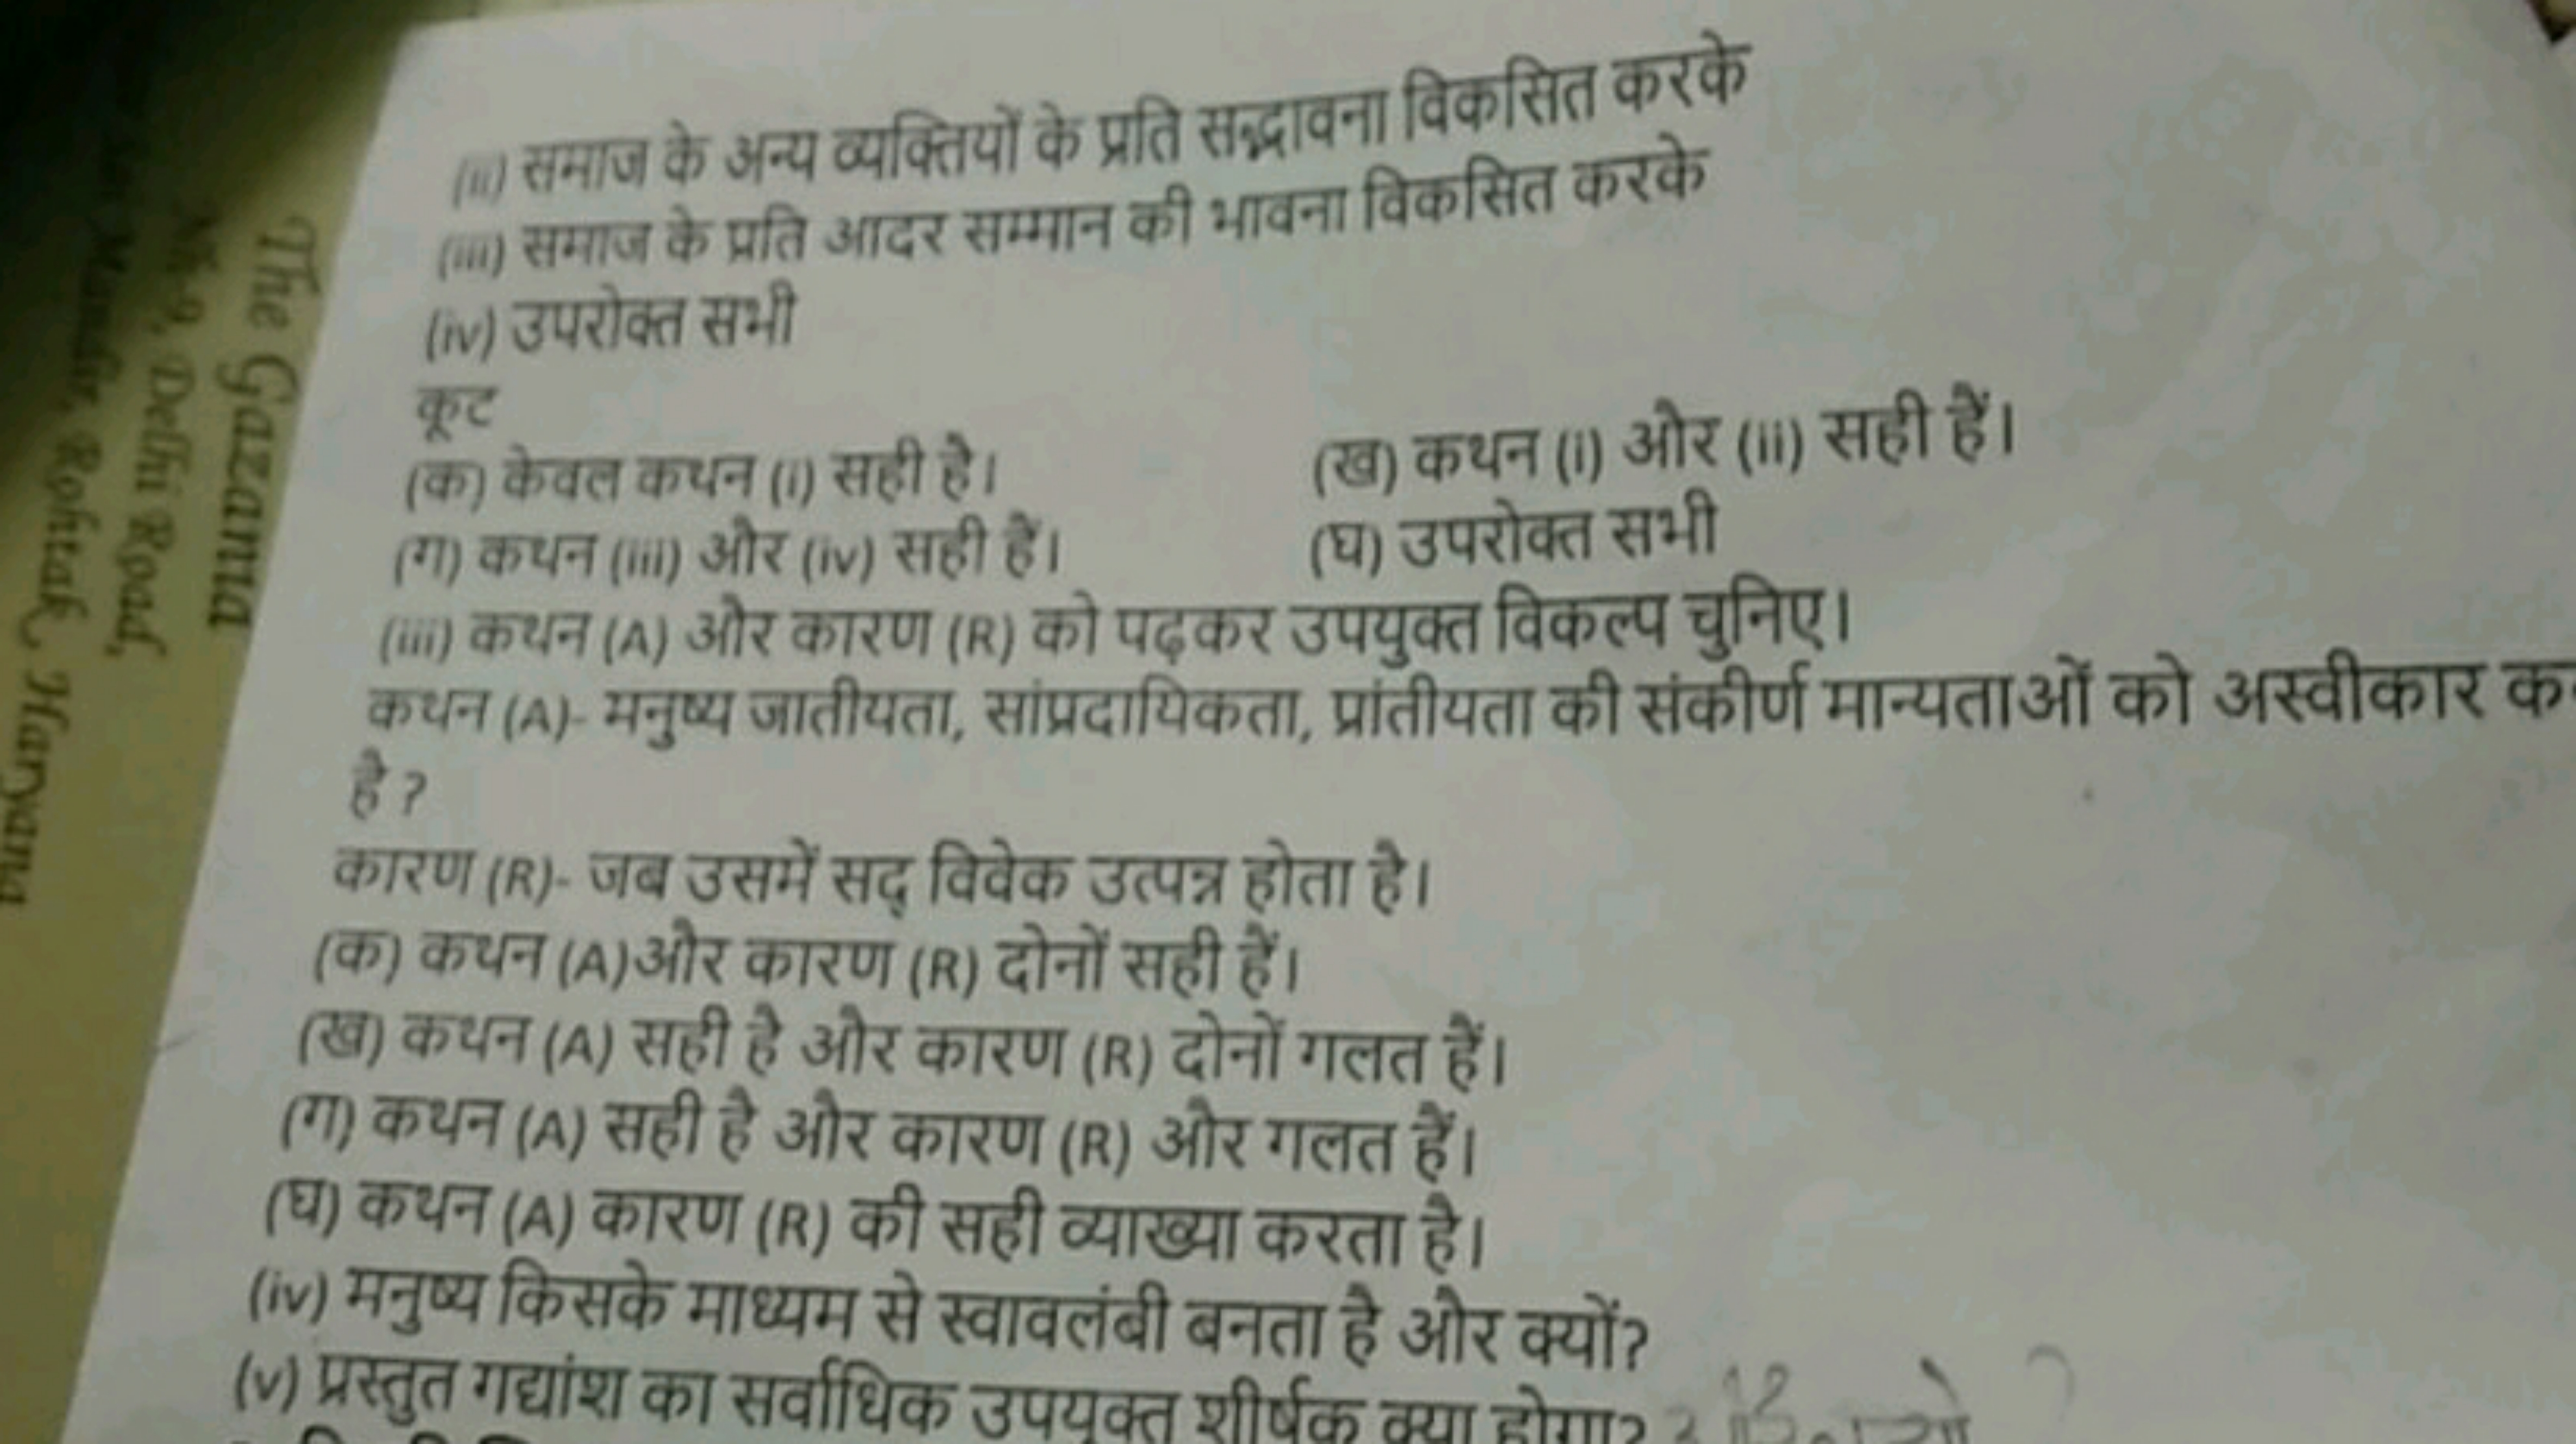 (ii) समाज के अन्य व्यक्तियों के प्रति सद्भावना विकसित करके
(iii) समाज के प्रति आदर सम्मान की भावना विकसित करके
(iv) उपरोक्त सभी
कूट
(क) केवल कथन (i) सही है।
(ख) कथन (i) और (ii) सही हैं।
(ग) कथन (iii) और (iv) सही हैं।
(घ) उपरोक्त सभी
(iii) कथन (A) और कारण (R) को पढ़कर उपयुक्त विकल्प चुनिए।
कथन (A)- मनुष्य जातीयता, सांप्रदायिकता, प्रांतीयता की संकीर्ण मान्यताओं को अस्वीकार
है ?
कारण (R)- जब उसमें सद् विवेक उत्पन्न होता है।
(क) कथन (A)और कारण (R) दोनों सही हैं।
(ख) कथन (A) सही है और कारण (R) दोनों गलत हैं।
(ग) कथन (A) सही है और कारण (R) और गलत हैं।
(घ) कथन (A) कारण (R) की सही व्याख्या करता है।
(iv) मनुष्य किसके माध्यम से स्वावलंबी बनता है और क्यों?
(v) प्रस्तुत गद्यांश का सर्वाधिक उपयुक्त शीर्षक क्या होगा?
The Gazania
Delhi Road,
Mandir, Rohtak, Haryana